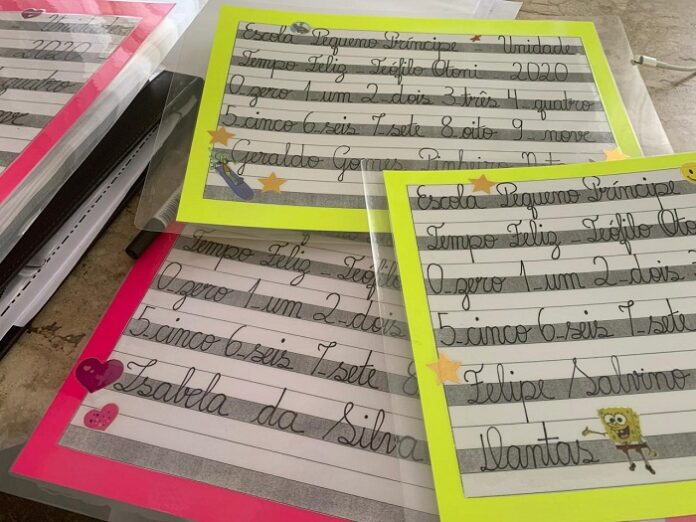 Escola Pequeno Príncipe - Unidade
Tempo Feliz - Teófilo Otoni 2020
0-zero 1-um 2-dois 3-três 4-quatro
5-cinco 6-seis 7-sete 8-oito 9-nove
Geraldo Gomes Pinheiro
Escola Pequeno Príncipe
Tempo Feliz - Teófilo Oto
0-zero 1-um 2-dois
5-cinco 6-seis 7-sete
Felipe Salvino
Dantas
Tempo Feliz - Teófilo
0-zero 1-um 2-dois
5-cinco 6-seis 7-sete
Isabela da Silva
2020